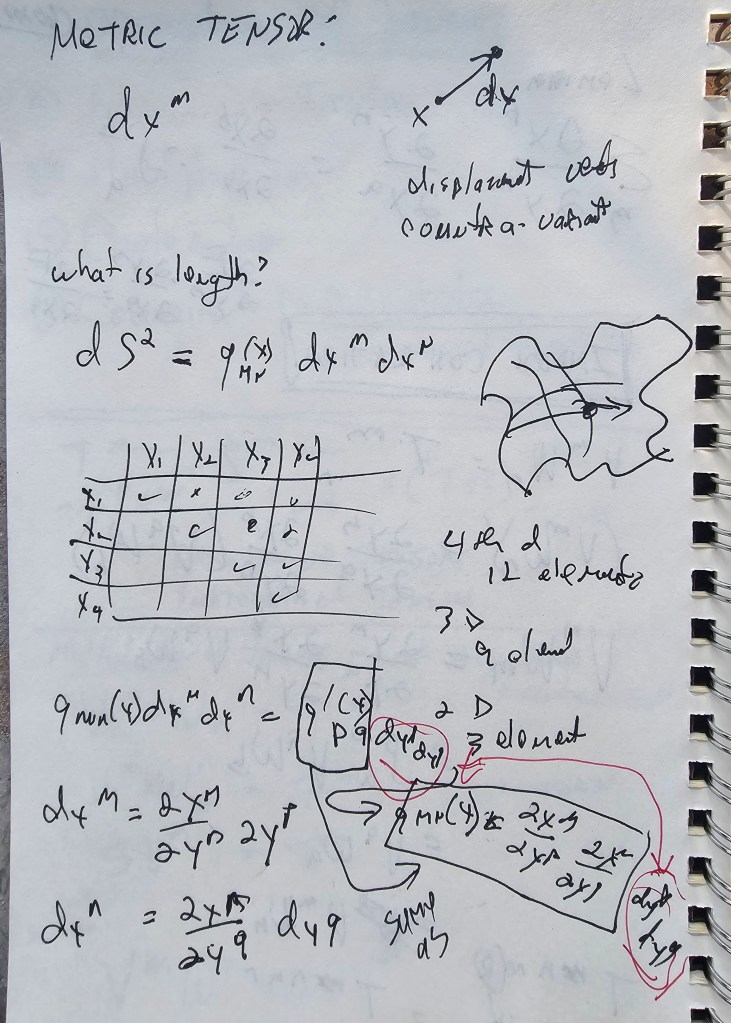 METRIC TENSOR:
dx^m
x dx
displacment vects
countra-variant
what is length?
dS² = g_mn(x) dx^m dx^n
x1 x2 x3 x4
x1
x2
x3
x4
4th d
12 elements
3D
9 elemd
2 D
3 element
g_mn(x) dx^m dx^n = g'_pq(y) dy^p dy^q
dx^m = ∂x^m/∂y^p ∂y^p
g_mn(x) ∂x^m/∂y^p ∂x^n/∂y^q
dy^p
dy^q
dx^n = ∂x^n/∂y^q dy^q
same
as